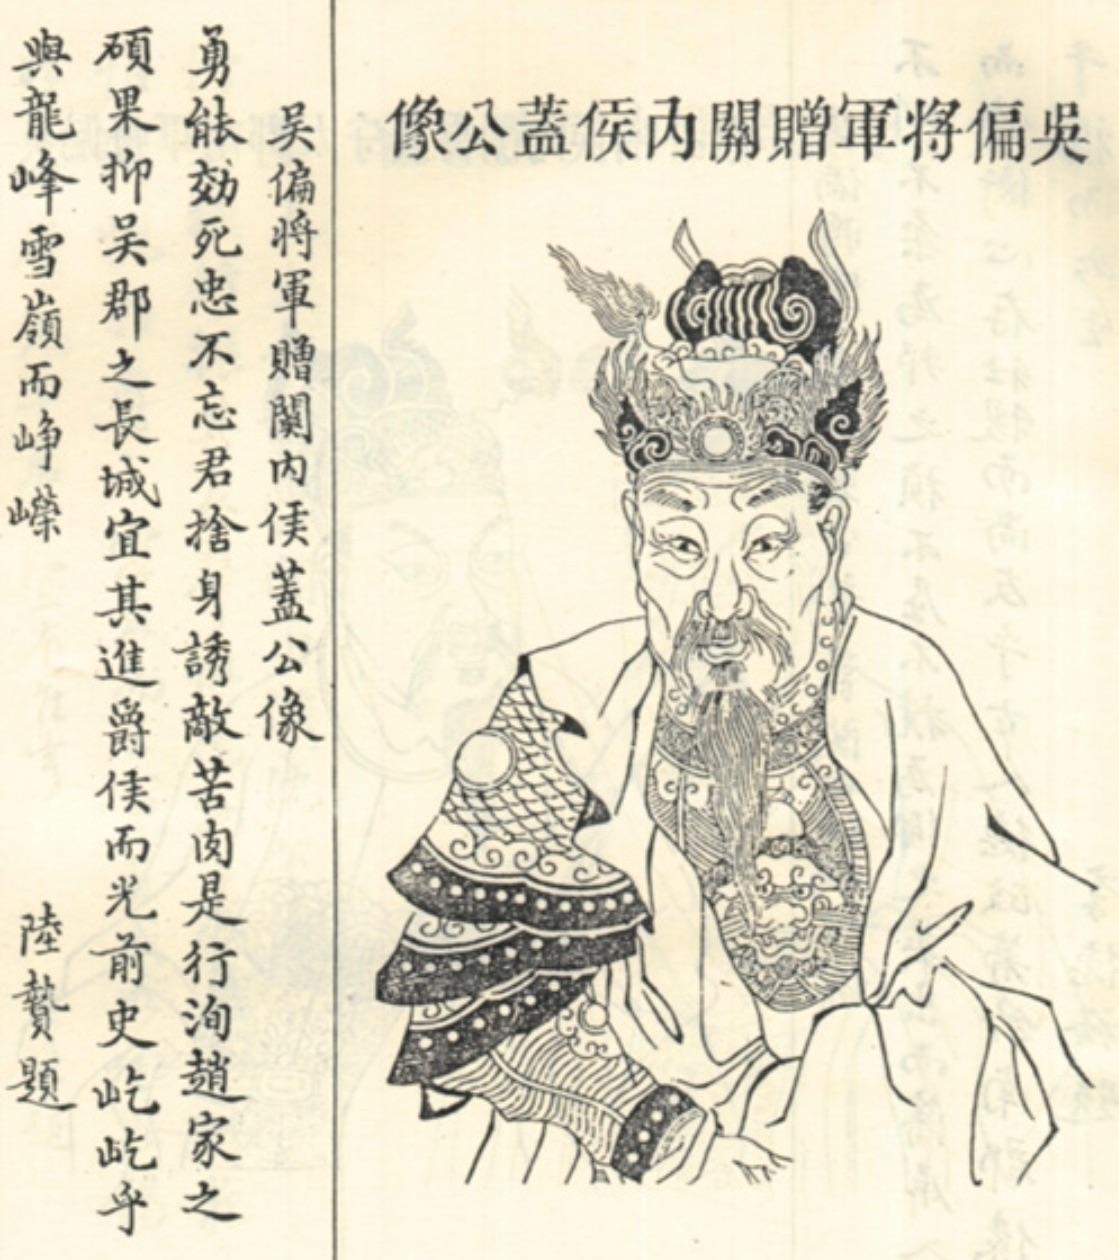 吳偏將軍贈關內侯蓋公像
吴偏將軍贈關內侯蓋公像
勇能効死忠不忘君捨身誘敵苦肉是行洵趙家之
碩果抑吴郡之長城宜其進爵侯而光前史屹屹乎
與龍峰雪嶺而崢嶸
陸贄題